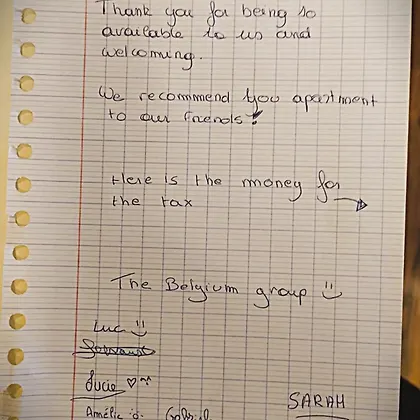 Thank you for being so
available to us and
welcoming.
We recommend you apartment
to our friends!
Here is the money for
the tax
The Belgium group :)
Luc :)
Lucie ♡
SARAH
Amélie